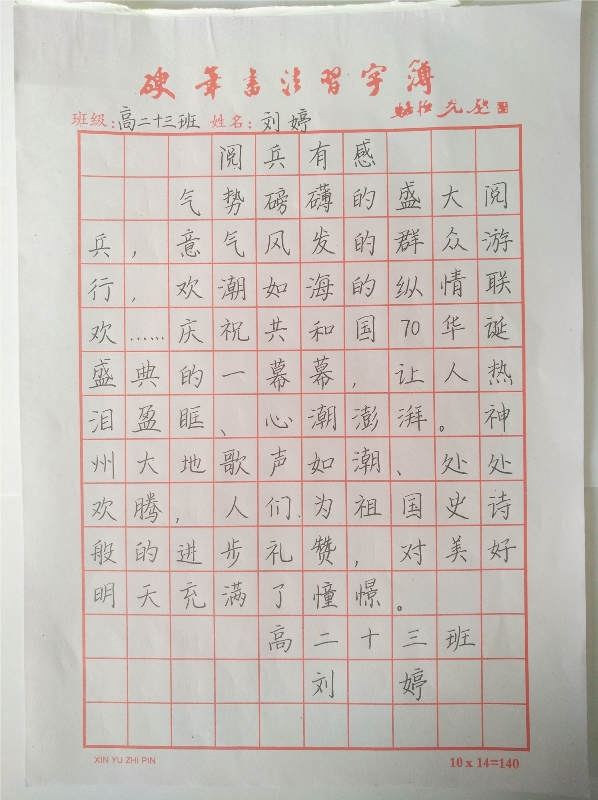 硬笔书法習字簿
班级:高二十三班 姓名:刘婷
阅兵有感
气势磅礴的盛大阅
兵，意气风发的群众游
行，欢潮如海的纵情联
欢……庆祝共和国70华诞
盛典的一幕幕，让人热
泪盈眶、心潮澎湃。神
州大地歌声如潮、处处
欢腾，人们为祖国史诗
般的进步礼赞，对美好
明天充满了憧憬。
高二十三班
刘婷
XIN YU ZHI PIN
10 x 14=140